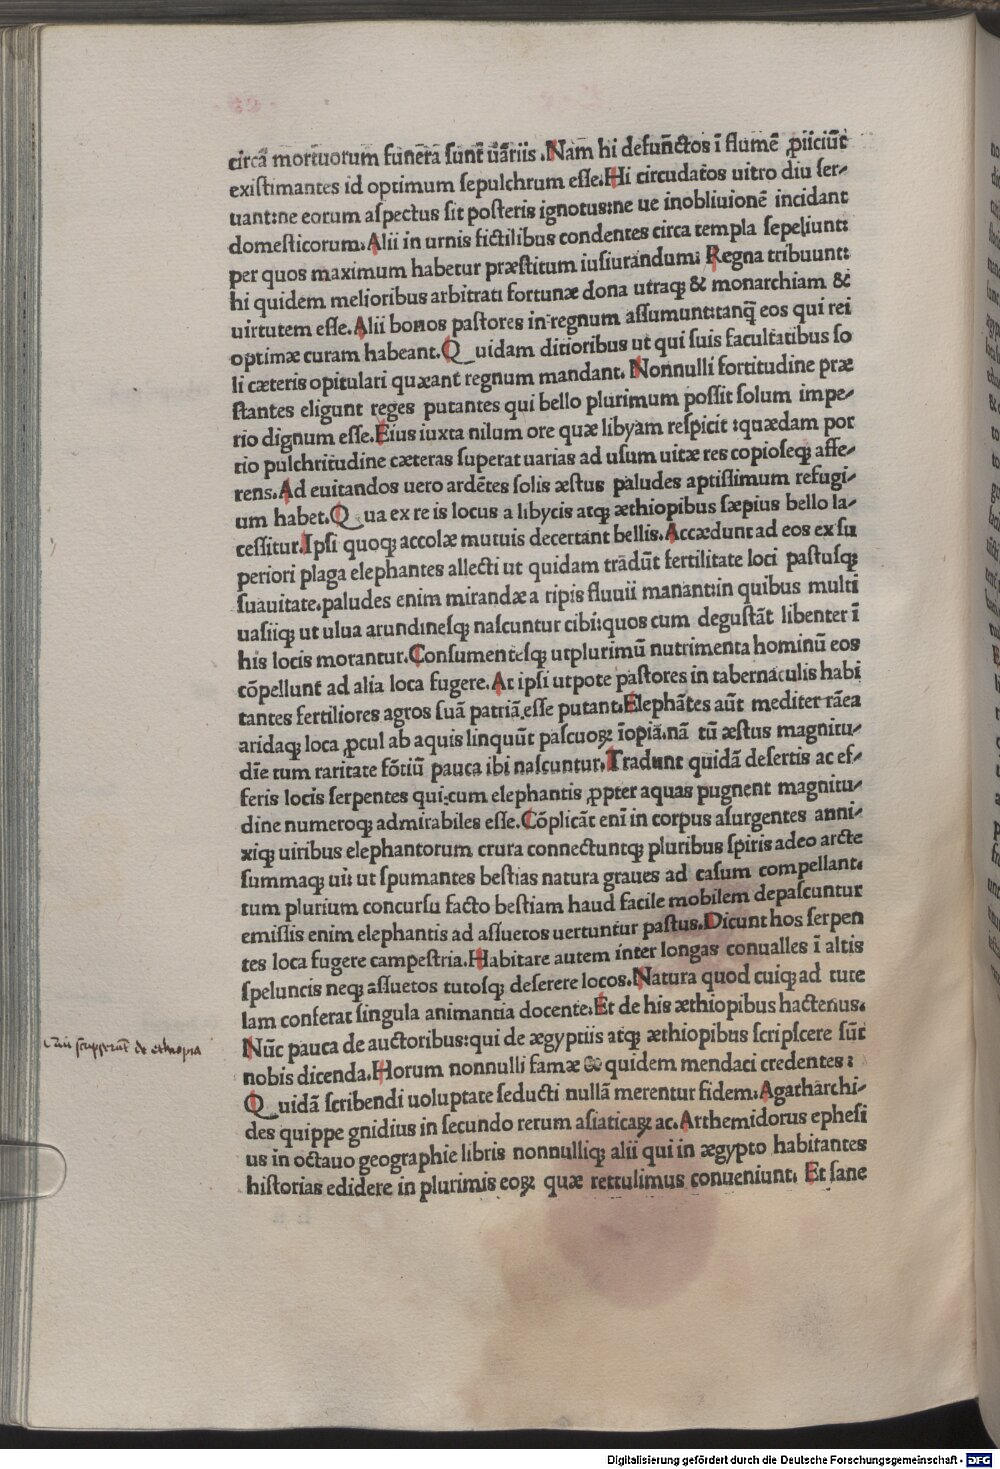 circa mortuorum funera sunt uariis. Nam hi defunctos ĩ flumẽ ꝓiiciũt
existimantes id optimum sepulchrum esse. Hi circũdatos uitro diu ser-
uant: ne eorum aspectus sit posteris ignotus: ne ue inobliuionẽ incidant
domesticorum. Alii in urnis fictilibus condentes circa templa sepeliunt:
per quos maximum habetur præstitum iusiurandum: Regna tribuunt:
hi quidem melioribus arbitrati fortunæ dona utraqꝫ & monarchiam &
uirtutem esse. Alii bonos pastores in regnum assumunt: tanq̃ eos qui rei
optimæ curam habeant. Quidam ditioribus ut qui suis facultatibus so
li cæteris opitulari quæant regnum mandant. Nonnulli fortitudine præ
stantes eligunt reges putantes qui bello plurimum possit solum impe-
rio dignum esse. Eius iuxta nilum ore quæ libyam respicit: quædam por
tio pulchritudine cæteras superat uarias ad usum uitæ res copioseqꝫ affe-
rens. Ad euitandos uero ardẽtes solis æstus paludes aptissimum refugi-
um habet. Qua ex re is locus a libycis atqꝫ æthiopibus sæpius bello la-
cessitur. Ipsi quoqꝫ accolæ mutuis decertant bellis. Accædunt ad eos ex su
periori plaga elephantes allecti ut quidam tradũt fertilitate loci pastusqꝫ
suauitate. paludes enim mirandæ a ripis fluuii manant: in quibus multi
uastiqꝫ ut ulua arundinesqꝫ nascuntur cibi: quos cum degustãt libenter ĩ
his locis morantur. Consumentesqꝫ utplurimũ nutrimenta hominũ eos
cõpellunt ad alia loca fugere. At ipsi utpote pastores in tabernaculis habi
tantes fertiliores agros suã patriã esse putant. Elephãtes aũt mediter rãea
aridaqꝫ loca ꝓcul ab aquis linquũt pascuoꝝ ĩopiã. nã tũ æstus magnitu-
dĩe tum raritate fõtiũ pauca ibi nascuntur. Tradunt quidã desertis ac ef-
feris locis serpentes qui cum elephantis ꝓpter aquas pugnent magnitu-
dine numeroqꝫ admirabiles esse. Cõplicãt enĩ in corpus asurgentes anni-
xiqꝫ uiribus elephantorum crura connectuntqꝫ pluribus spiris adeo arcte
summaqꝫ ui: ut spumantes bestias natura graues ad casum compellant.
tum plurium concursu facto bestiam haud facile mobilem depascuntur
emissis enim elephantis ad assuetos uertuntur pastus. Dicunt hos serpen
tes loca fugere campestria. Habitare autem inter longas conualles ĩ altis
speluncis neqꝫ assuetos tutosqꝫ deserere locos. Natura quod cuiqꝫ ad tute
lam conferat singula animantia docente. Et de his æthiopibus hactenus.
Nũc pauca de auctoribus: qui de ægyptiis atqꝫ æthiopibus scripsere sũt
nobis dicenda. Horum nonnulli famæ & quidem mendaci credentes:
Quidã scribendi uoluptate seducti nullã merentur fidem: Agatharchi-
des quippe gnidius in secundo rerum asiaticaꝝ ac. Arthemidorus ephesi
us in octauo geographie libris nonnulliqꝫ alii qui in ægypto habitantes
historias edidere in plurimis eoꝝ quæ rettulimus conueniunt. Et sane
de ethiopia
Digitalisierung gefördert durch die Deutsche Forschungsgemeinschaft - DFG